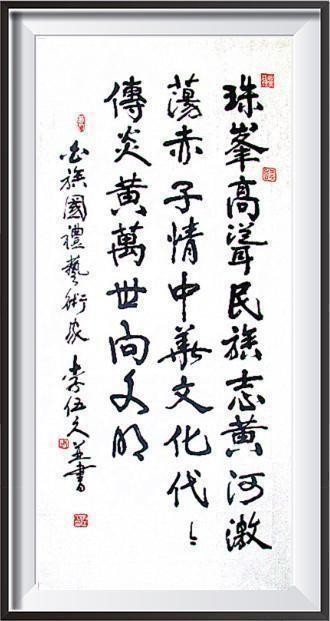 珠峯高聳民族志黄河激
蕩赤子情中華文化代〻
傳炎黄萬世向文明
白族國禮藝術家 李伍久並書